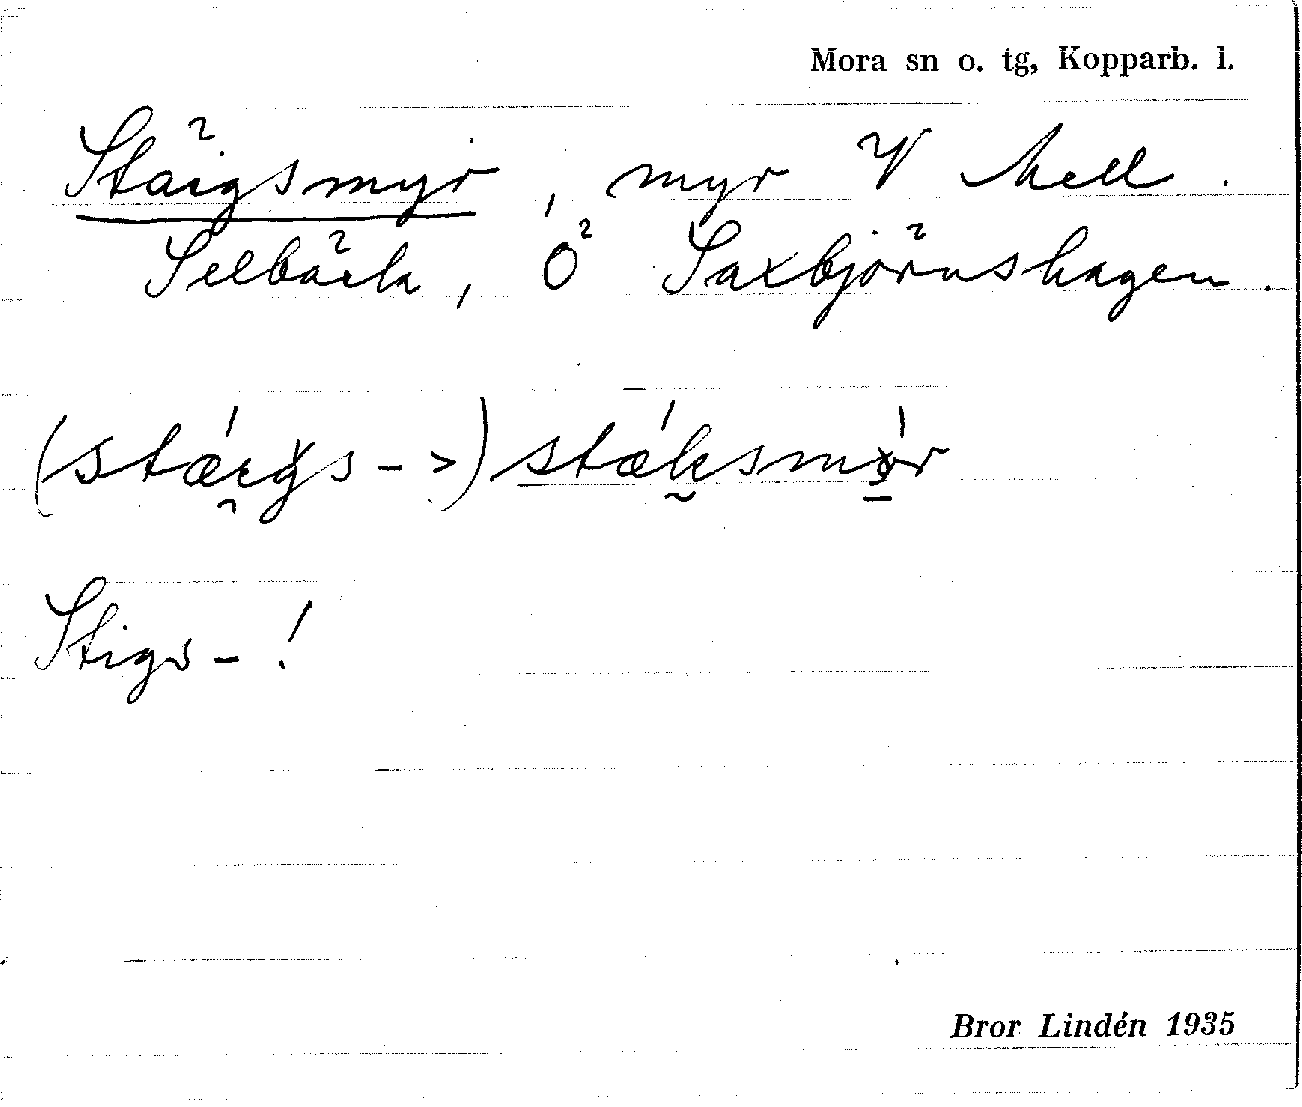 Mora sn o. tg, Kopparb. l.
Stäigsmyr, myr V Mell.
Selbäck, O Saxbjörnshagen.
Stigs-!
Bror Lindén 1935